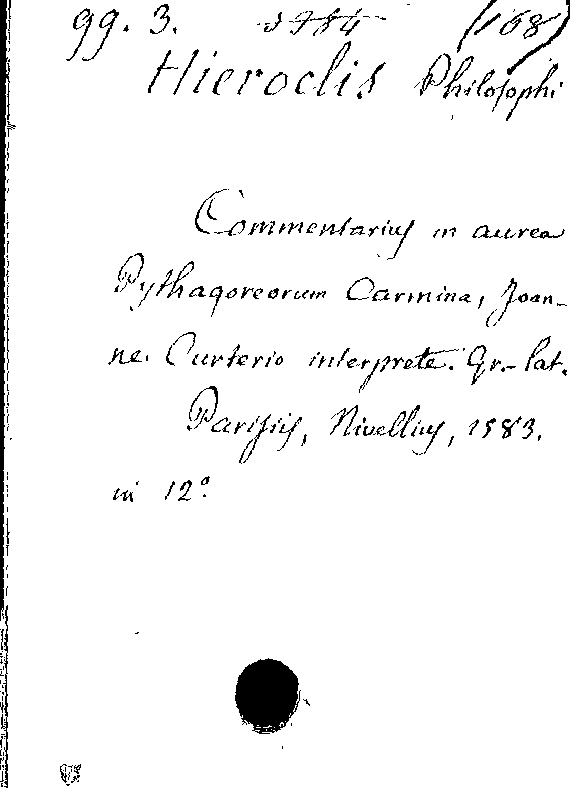 gg. 3. 5984 (168)
Hieroclis Philosophi
Commentarius in aurea
Pythagoreorum Carmina, Joan-
ne. Curterio interprete. Gr.-lat.
Parisiis, Nivellius, 1583.
in 12º